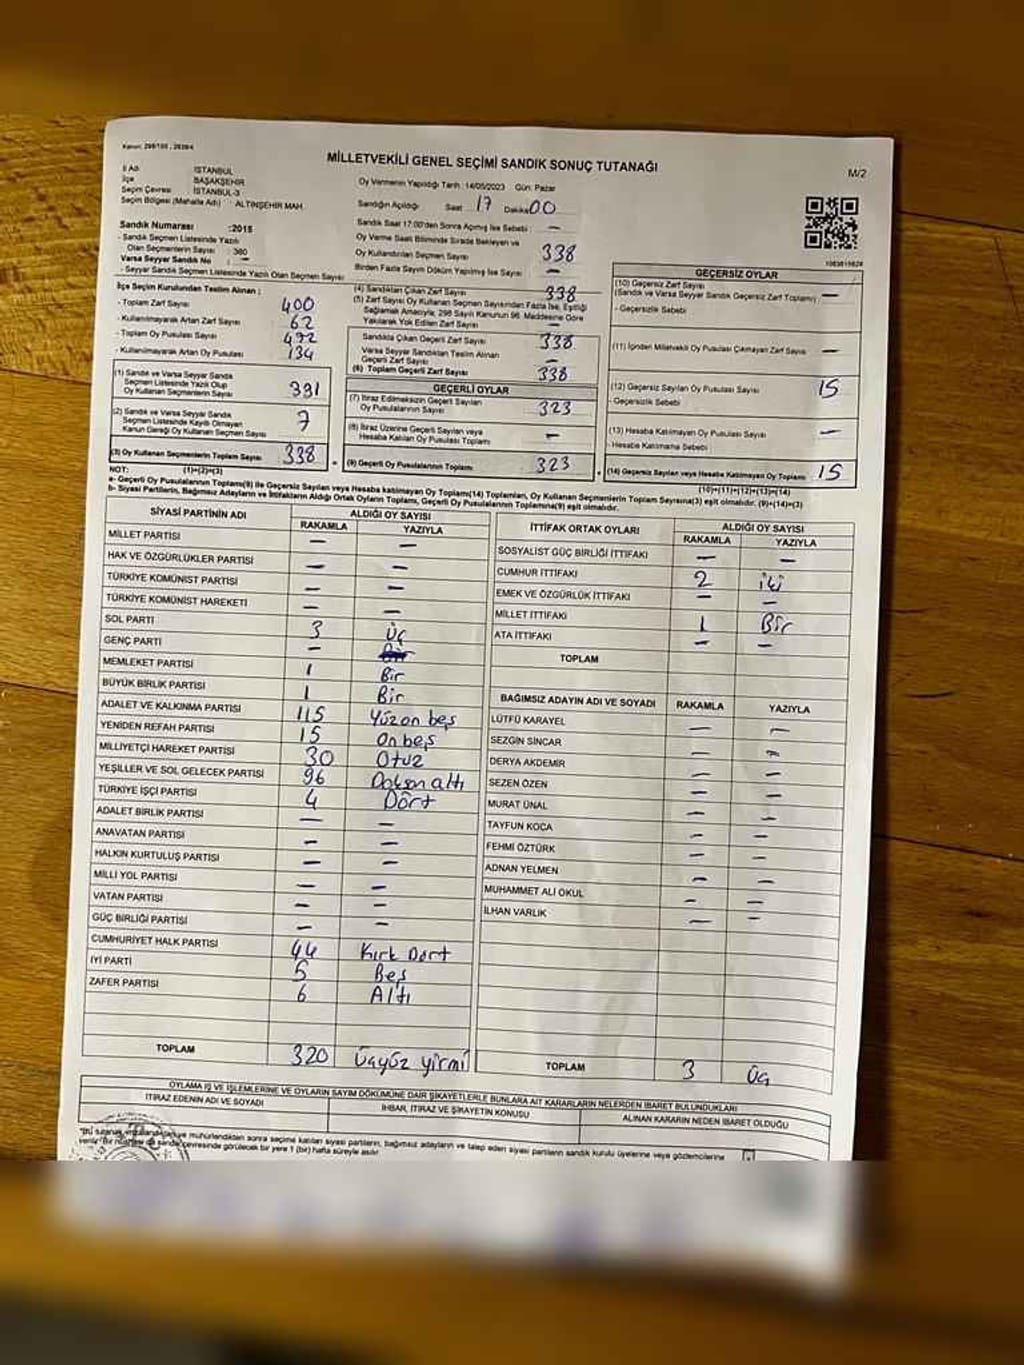 Kanun: 298/105 , 2839/4
MİLLETVEKİLİ GENEL SEÇİMİ SANDIK SONUÇ TUTANAĞI
M/2
İl Adı : İSTANBUL
İlçe : BAŞAKŞEHİR
Seçim Çevresi : İSTANBUL-3
Seçim Bölgesi (Mahalle Adı) : ALTINŞEHİR MAH.
Oy Vermenin Yapıldığı Tarih : 14/05/2023 Gün: Pazar
Sandığın Açıldığı Saat 17 Dakika 00
Sandık Numarası : 2015
- Sandık Seçmen Listesinde Yazılı
Olan Seçmenlerin Sayısı : 380
Varsa Seyyar Sandık No : —
- Seyyar Sandık Seçmen Listesinde Yazılı Olan Seçmen Sayısı
Sandık Saat 17:00'den Sonra Açılmış İse Sebebi : —
Oy Verme Saati Bitiminde Sırada Bekleyen ve
Oy Kullandırılan Seçmen Sayısı 338
Birden Fazla Sayım Döküm Yapılmış İse Sayısı —
İlçe Seçim Kurulundan Teslim Alınan :
- Toplam Zarf Sayısı 400
- Kullanılmayarak Artan Zarf Sayısı 62
- Toplam Oy Pusulası Sayısı
- Kullanılmayarak Artan Oy Pusulası 134
(1) Sandık ve Varsa Seyyar Sandık
Seçmen Listesinde Yazılı Olup
Oy Kullanan Seçmenlerin Sayısı 331
(2) Sandık ve Varsa Seyyar Sandık
Seçmen Listesinde Kayıtlı Olmayan
Kanun Gereği Oy Kullanan Seçmen Sayısı 7
(3) Oy Kullanan Seçmenlerin Toplam Sayısı 338
(1)+(2)=(3)
(4) Sandıktan Çıkan Zarf Sayısı 338
(5) Zarf Sayısı Oy Kullanan Seçmen Sayısından Fazla İse, Eşitliği
Sağlamak Amacıyla; 298 Sayılı Kanunun 98. Maddesine Göre
Yakılarak Yok Edilen Zarf Sayısı —
Sandıkta Çıkan Geçerli Zarf Sayısı 338
Varsa Seyyar Sandıktan Teslim Alınan
Geçerli Zarf Sayısı —
(6) Toplam Geçerli Zarf Sayısı 338
GEÇERLİ OYLAR
(7) İtiraz Edilmeksizin Geçerli Sayılan
Oy Pusulalarının Sayısı 323
(8) İtiraz Üzerine Geçerli Sayılan veya
Hesaba Katılan Oy Pusulası Toplamı —
(9) Geçerli Oy Pusulalarının Toplamı 323
GEÇERSİZ OYLAR
(10) Geçersiz Zarf Sayısı
(Sandık ve Varsa Seyyar Sandık Geçersiz Zarf Toplamı) —
- Geçersizlik Sebebi
(11) İçinden Milletvekili Oy Pusulası Çıkmayan Zarf Sayısı —
(12) Geçersiz Sayılan Oy Pusulası Sayısı 15
- Geçersizlik Sebebi
(13) Hesaba Katılmayan Oy Pusulası Sayısı —
- Hesaba Katılmama Sebebi
(14) Geçersiz Sayılan veya Hesaba Katılmayan Oy Toplamı 15
(10)+(11)+(12)+(13)=(14)
NOT:
a- Geçerli Oy Pusulalarının Toplamı(9) ile Geçersiz Sayılan veya Hesaba katılmayan Oy Toplamı(14) Toplamları, Oy Kullanan Seçmenlerin Toplam Sayısına(3) eşit olmalıdır. (9)+(14)=(3)
b- Siyasi Partilerin, Bağımsız Adayların ve İttifakların Aldığı Ortak Oyların Toplamı, Geçerli Oy Pusulalarının Toplamına(9) eşit olmalıdır.
SİYASİ PARTİNİN ADI ALDIĞI OY SAYISI
RAKAMLA YAZIYLA
MİLLET PARTİSİ — —
HAK VE ÖZGÜRLÜKLER PARTİSİ — —
TÜRKİYE KOMÜNİST PARTİSİ — —
TÜRKİYE KOMÜNİST HAREKETİ — —
SOL PARTİ 3 Üç
GENÇ PARTİ —
MEMLEKET PARTİSİ 1 Bir
BÜYÜK BİRLİK PARTİSİ 1 Bir
ADALET VE KALKINMA PARTİSİ 115 Yüzon beş
YENİDEN REFAH PARTİSİ 15 On beş
MİLLİYETÇİ HAREKET PARTİSİ 30 Otuz
YEŞİLLER VE SOL GELECEK PARTİSİ 96 Doksan altı
TÜRKİYE İŞÇİ PARTİSİ 4 Dört
ADALET BİRLİK PARTİSİ — —
ANAVATAN PARTİSİ — —
HALKIN KURTULUŞ PARTİSİ — —
MİLLİ YOL PARTİSİ — —
VATAN PARTİSİ — —
GÜÇ BİRLİĞİ PARTİSİ — —
CUMHURİYET HALK PARTİSİ 44 Kırk Dört
İYİ PARTİ 5 Beş
ZAFER PARTİSİ 6 Altı
TOPLAM 320 Üçyüz yirmi
İTTİFAK ORTAK OYLARI ALDIĞI OY SAYISI
RAKAMLA YAZIYLA
SOSYALİST GÜÇ BİRLİĞİ İTTİFAKI — —
CUMHUR İTTİFAKI 2 iki
EMEK VE ÖZGÜRLÜK İTTİFAKI — —
MİLLET İTTİFAKI 1 Bir
ATA İTTİFAKI — —
TOPLAM
BAĞIMSIZ ADAYIN ADI VE SOYADI RAKAMLA YAZIYLA
LÜTFÜ KARAYEL — —
SEZGİN SİNCAR — —
DERYA AKDEMİR — —
SEZEN ÖZEN — —
MURAT ÜNAL — —
TAYFUN KOCA — —
FEHMİ ÖZTÜRK — —
ADNAN YELMEN — —
MUHAMMET ALİ OKUL — —
İLHAN VARLIK — —
TOPLAM 3 Üç
OYLAMA İŞ VE İŞLEMLERİNE VE OYLARIN SAYIM DÖKÜMÜNE DAİR ŞİKAYETLERLE BUNLARA AİT KARARLARIN NELERDEN İBARET BULUNDUKLARI
İTİRAZ EDENİN ADI VE SOYADI İHBAR, İTİRAZ VE ŞİKAYETİN KONUSU ALINAN KARARIN NEDEN İBARET OLDUĞU
mühürlendikten sonra seçime katılan siyasi partilerin, bağımsız adayların ve talep eden siyasi partilerin sandık kurulu üyelerine veya gözlemcilerine
çevresinde görülecek bir yere 1 (bir) hafta süreyle asılır.